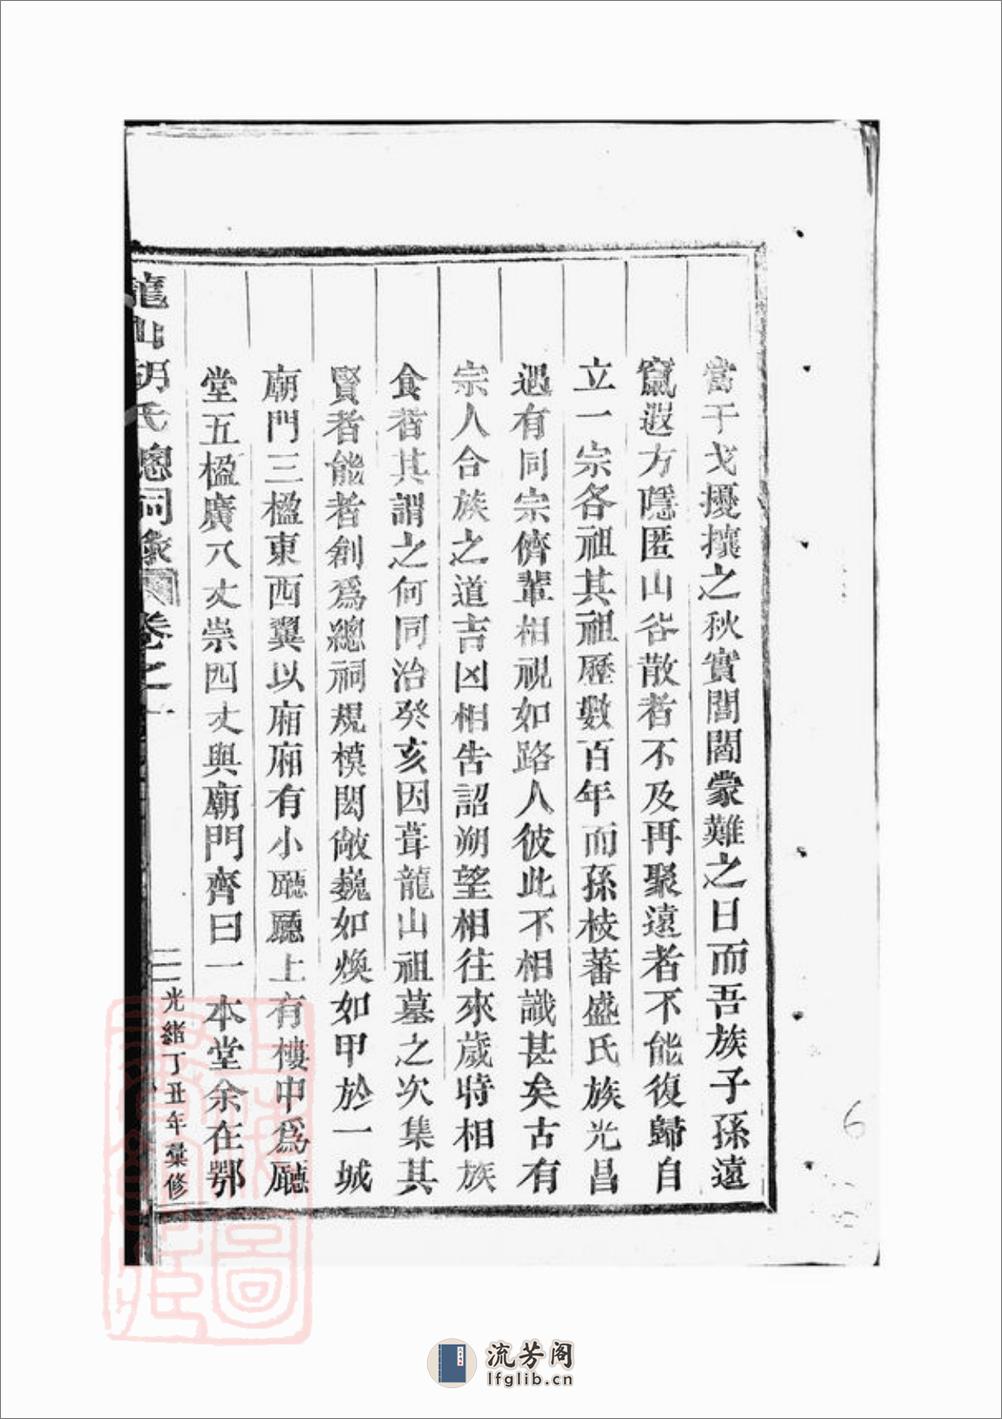 當干戈擾攘之秋實閭閻蒙難之日而吾族子孫遠
竄遐方隱匿山谷散者不及再聚遠者不能復歸自
立一宗各祖其祖歷數百年而孫枝蕃盛氏族光昌
遇有同宗儕輩相視如路人彼此不相識甚矣古有
宗人合族之道吉凶相告詔朔望相往來歲時相族
食者其謂之何同治癸亥因葺龍山祖墓之次集其
賢者能者創爲總祠規模閎敞巍如煥如甲於一城
廟門三楹東西翼以廂廂有小廳廳上有樓中爲廳
堂五楹廣八丈崇四丈與廟門齊曰一本堂余在鄂
龍山胡氏總祠彖 卷之
二 光緒丁丑年彙修
6
流芳阁
lfglib.cn